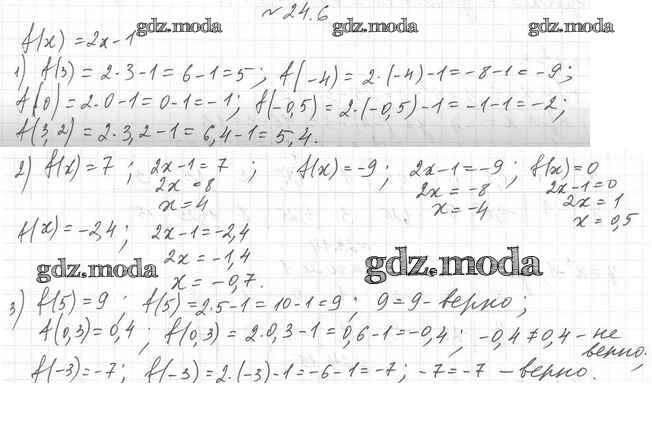 № 24.6
gdz.moda gdz.moda gdz.moda
f(x) = 2x-1
1) f(3) = 2·3-1 = 6-1 = 5; f(-4) = 2·(-4)-1 = -8-1 = -9;
f(0) = 2·0-1 = 0-1 = -1; f(-0,5) = 2·(-0,5)-1 = -1-1 = -2;
f(3,2) = 2·3,2-1 = 6,4-1 = 5,4.
2) f(x) = 7; 2x-1 = 7; f(x) = -9; 2x-1 = -9; f(x) = 0
2x = 8 2x = -8 2x-1 = 0
x = 4 x = -4 2x = 1
x = 0,5
f(x) = -2,4; 2x-1 = -2,4
2x = -1,4
gdz.moda gdz.moda
x = -0,7.
3) f(5) = 9; f(5) = 2·5-1 = 10-1 = 9; 9 = 9 - верно;
f(0,3) = 0,4; f(0,3) = 2·0,3-1 = 0,6-1 = -0,4; -0,4 ≠ 0,4 - не
верно;
f(-3) = -7; f(-3) = 2·(-3)-1 = -6-1 = -7; -7 = -7 - верно.